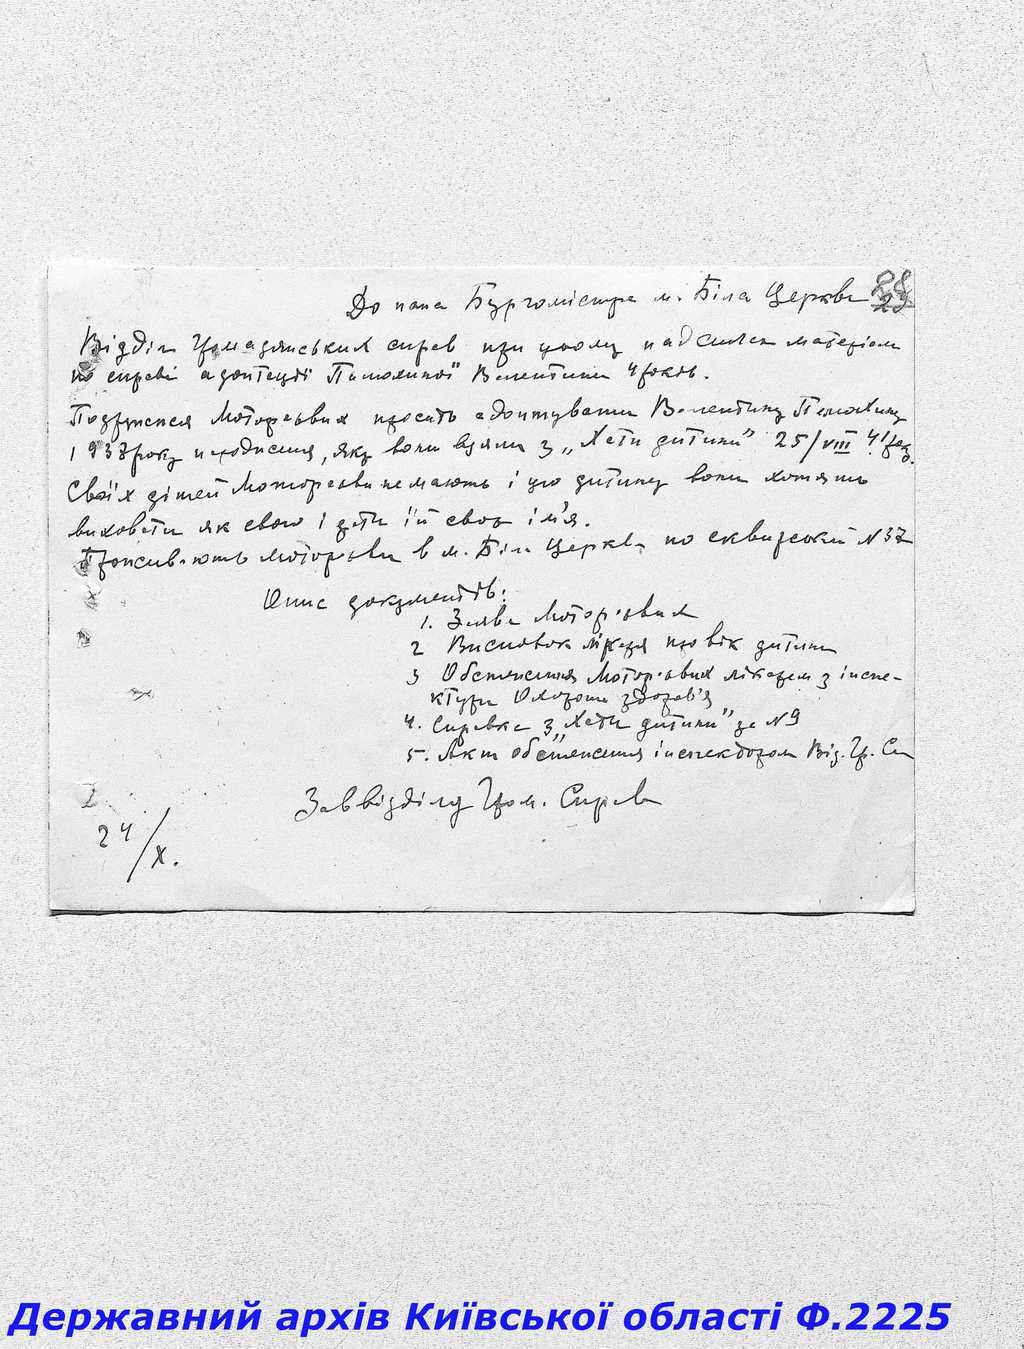 До пана Бургомістра м. Біла Церква 29
Відділ Громадянських справ при цьому надсилає матеріали
по справі адоптації Валентини 4 років.
Подружжя Моторових просить адоптувати Валентину
1937 року народження, яку вони взяли з „Хати дитини" 25/VIII 41 року.
Своїх дітей Моторови не мають і цю дитину вони хотять
виховати як свою і дати їй своє ім'я.
Проживають Моторови в м. Біла Церква по Сквирській № 37
Опис документів:
1. Заява Моторових
2 Висновок лікаря про вік дитини
3 Обстеження Моторових лікарем з інспе-
ктури Охорони здоров'я
4. Справка з „Хати дитини" за № 9
5. Акт обстеження інспектором Від. Гр. Сп
Заввідділу Гром. Справ
24/X.
Державний архів Київської області Ф.2225